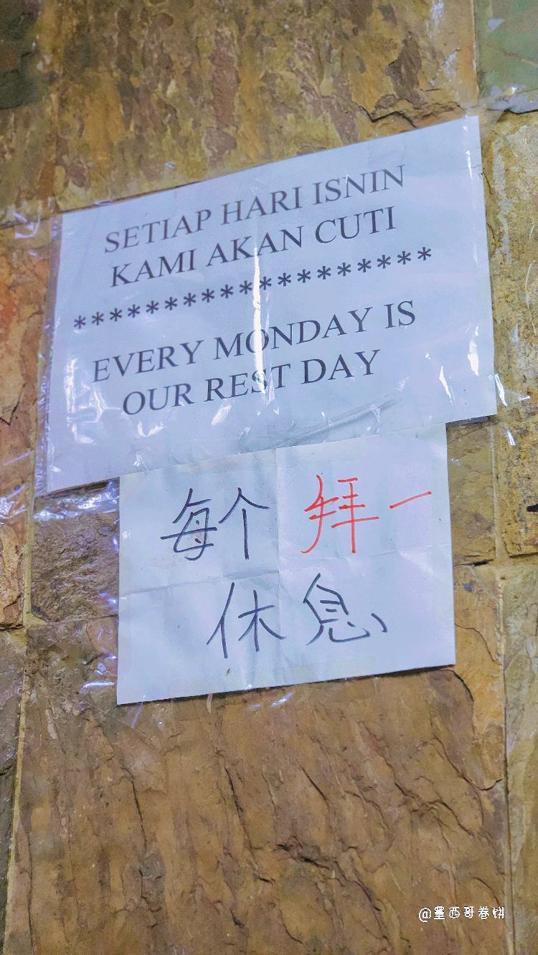 SETIAP HARI ISNIN
KAMI AKAN CUTI
*******************
EVERY MONDAY IS
OUR REST DAY
每个拜一
休息
@墨西哥卷饼